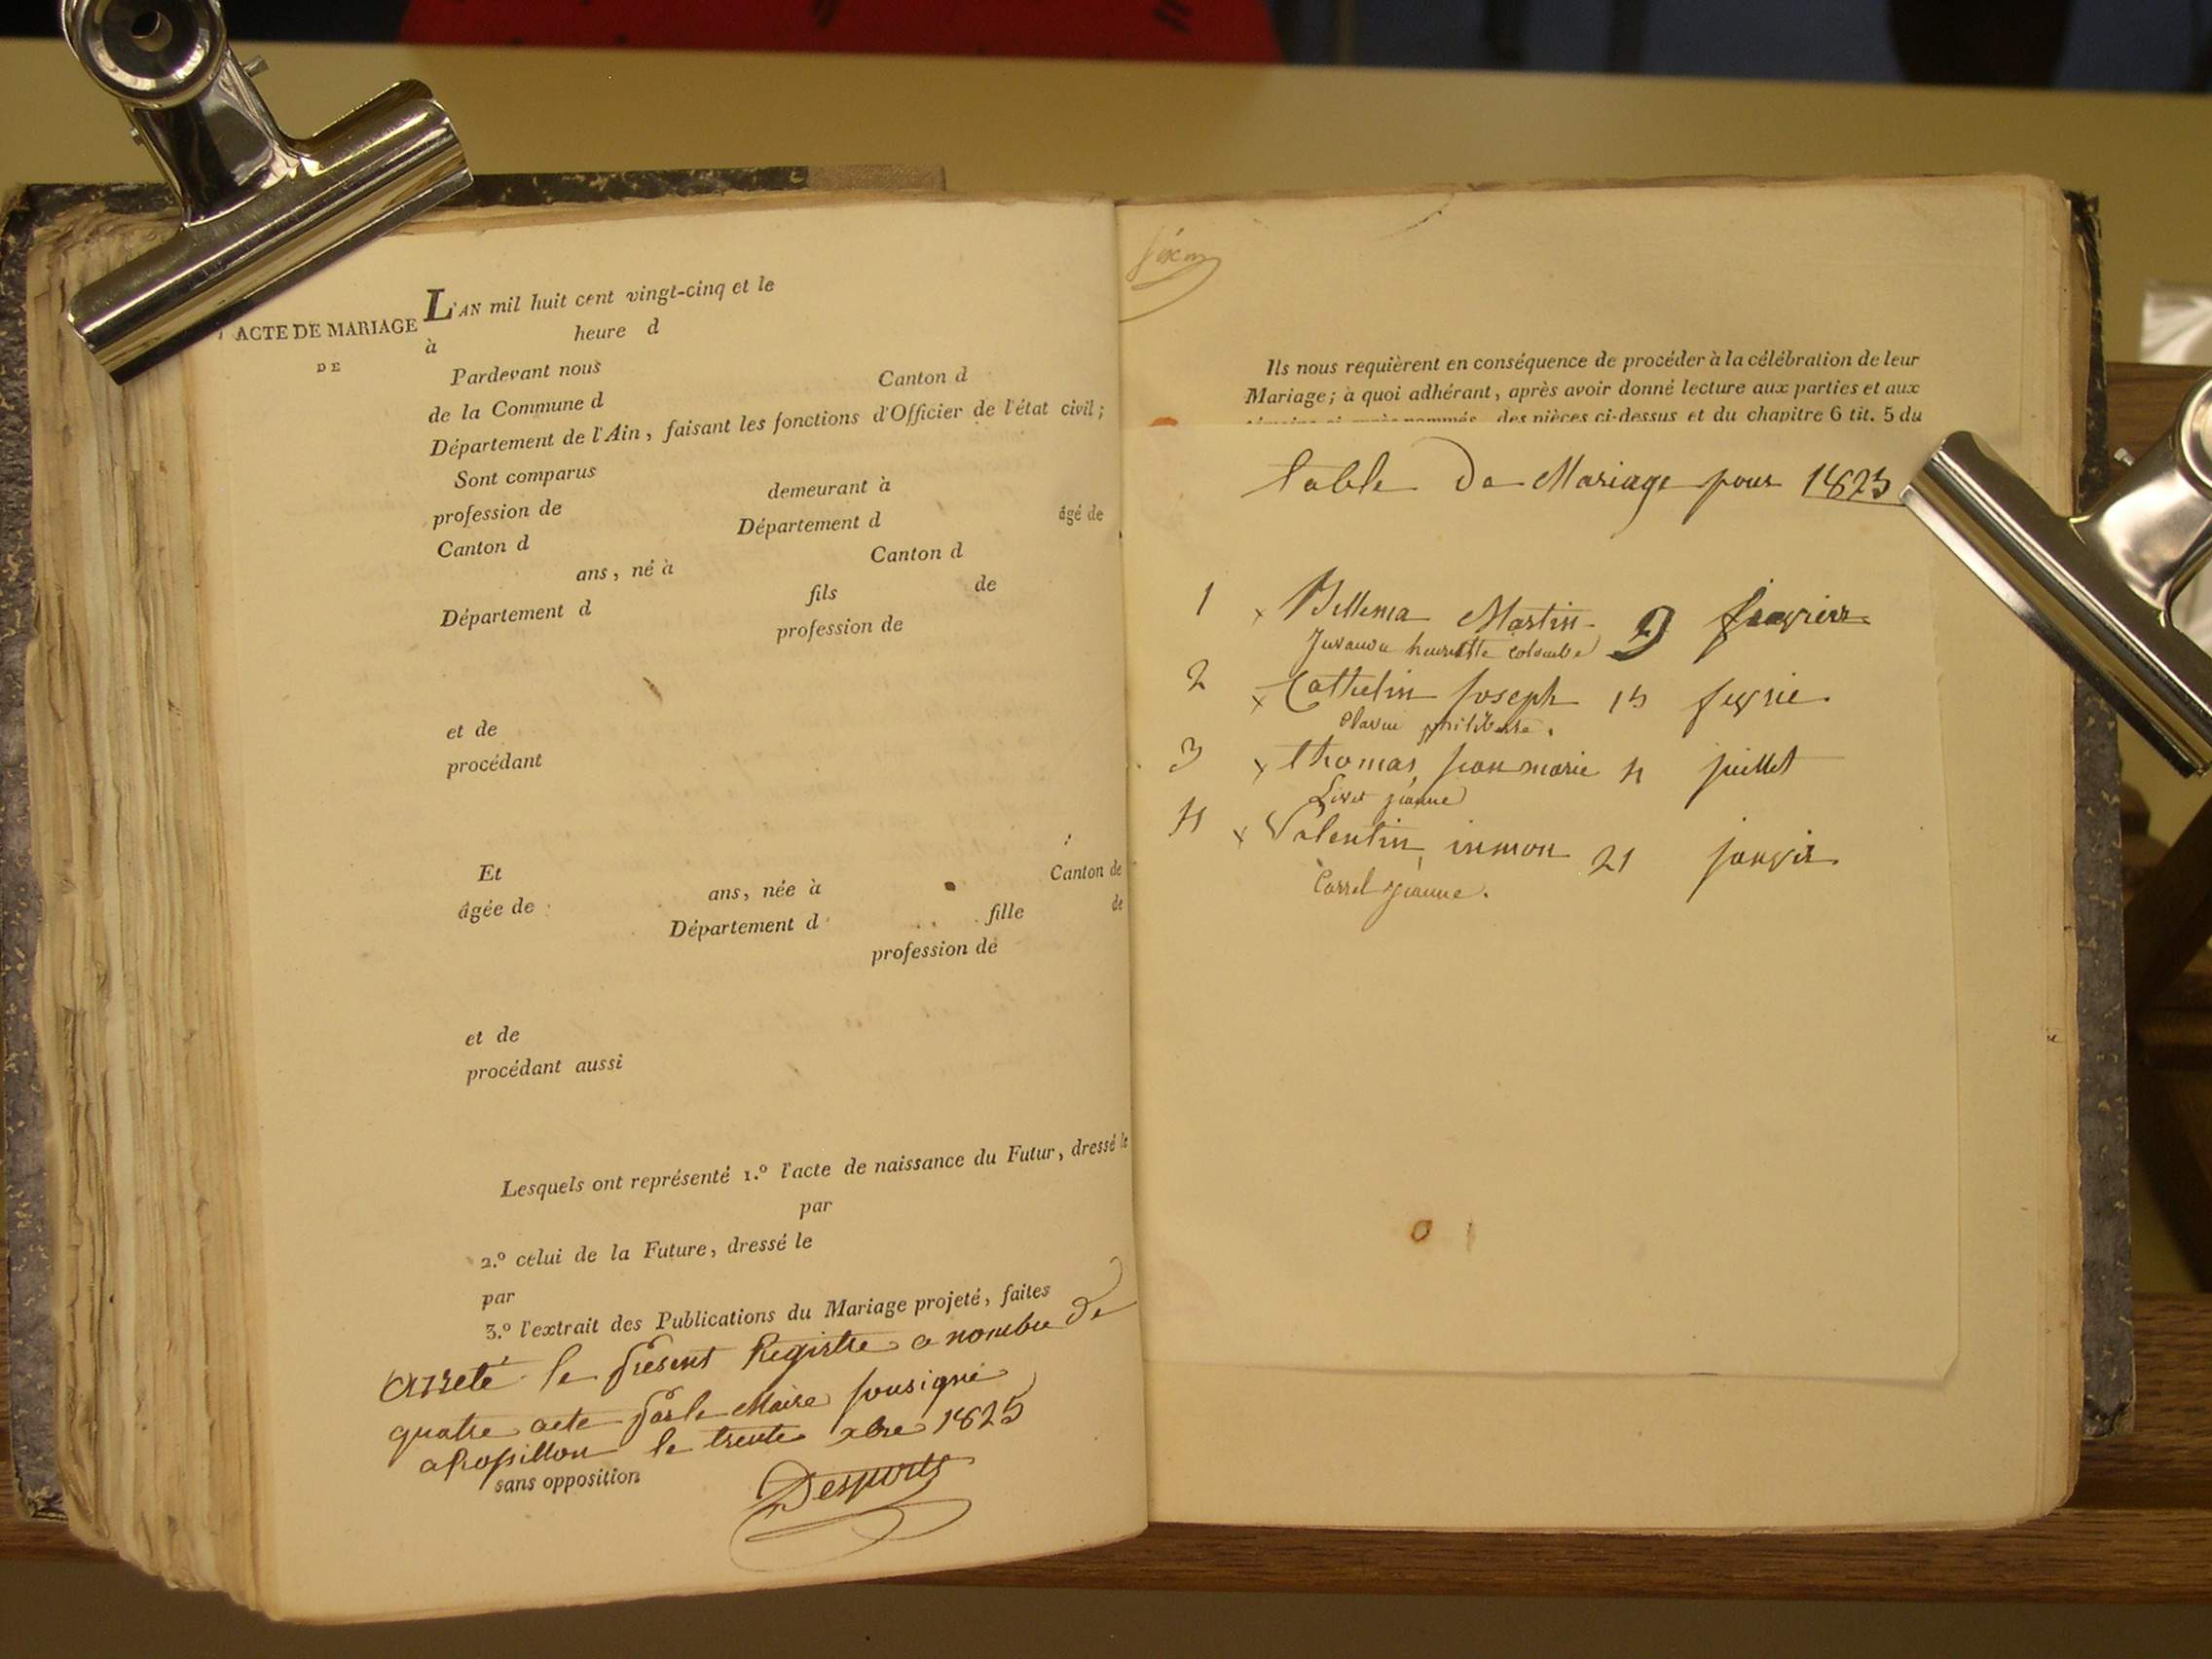 ACTE DE MARIAGE
DE
L'AN mil huit cent vingt-cinq et le
à heure d
Pardevant nous
de la Commune d Canton d
Département de l'Ain, faisant les fonctions d'Officier de l'état civil;
Sont comparus
profession de demeurant à
Canton d Département d âgé de
ans, né à Canton d
Département d fils de
profession de
et de
procédant
;
Et
âgée de ans, née à Canton de
Département d fille de
profession de
et de
procédant aussi
Lesquels ont représenté 1.º l'acte de naissance du Futur, dressé le
par
2.º celui de la Future, dressé le
par
3.º l'extrait des Publications du Mariage projeté, faites
arreté le present Registre a nombre de
quatre acte par le Maire sousigné
a Rossillon le trente xbre 1825
sans opposition
Desports
Ils nous requièrent en conséquence de procéder à la célébration de leur
Mariage; à quoi adhérant, après avoir donné lecture aux parties et aux
témoins ci-après nommés, des pièces ci-dessus et du chapitre 6 tit. 5 du
table De Mariage pour 1825
1 x Billema Martin 9 fevrier
henriette colombe
2 x Cathelin Joseph 15 fevrie
philiberte.
3 x thomas jean marie 4 juillet
Livet jeanne
4 x Valentin 21 janvie
Carrel jeanne.